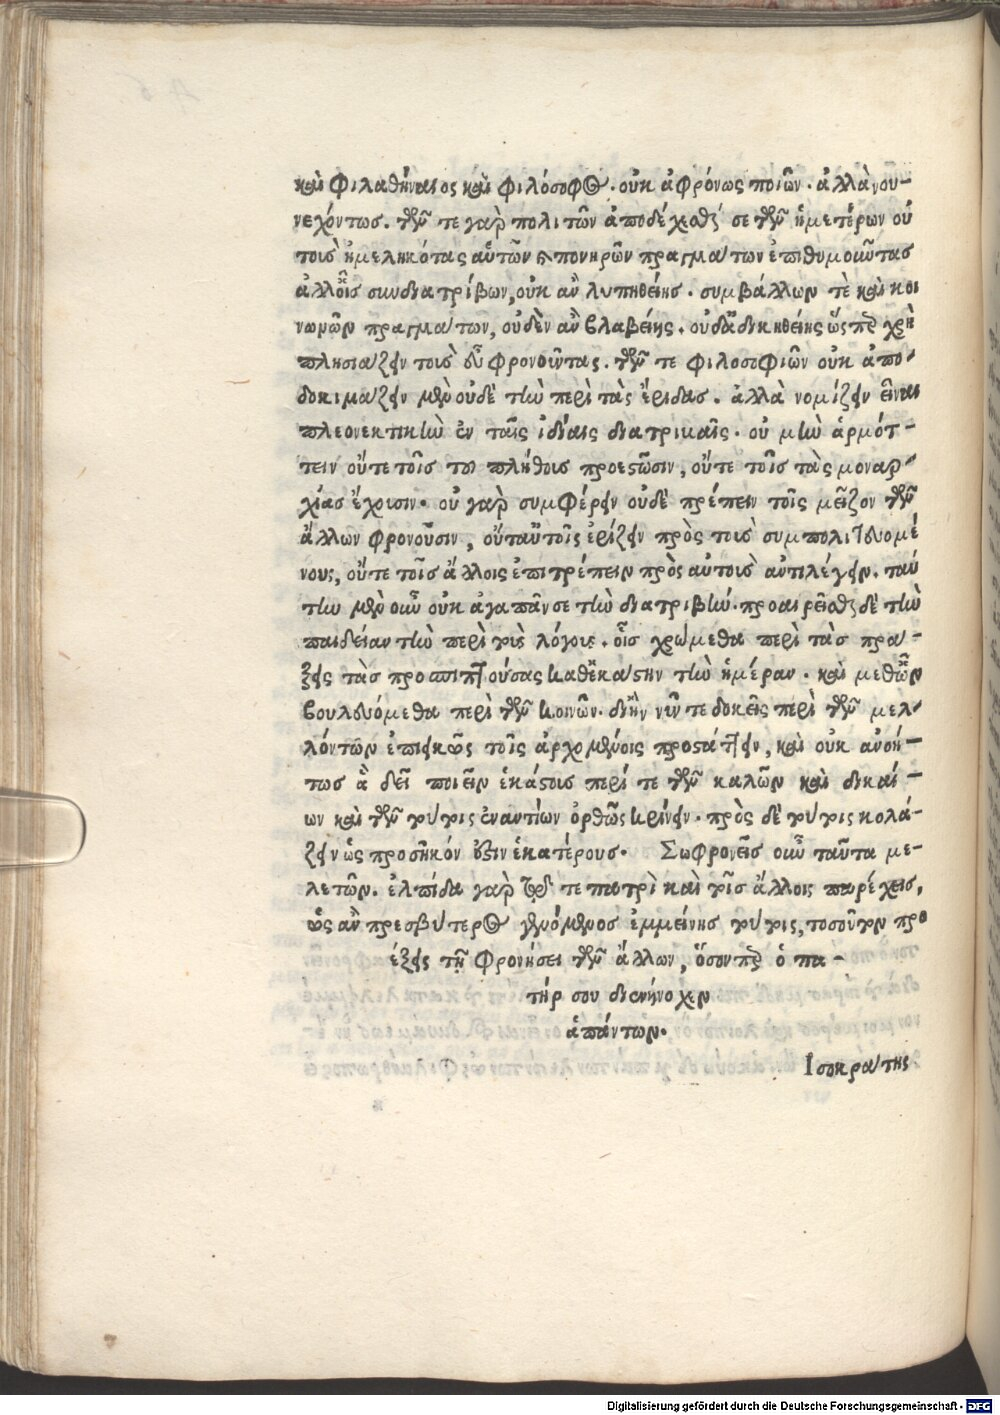 καὶ φιλαθήναιος καὶ φιλόσοφος. οὐκ ἀφρόνως ποιῶν. ἀλλὰ νου-
νεχόντως. τῶν τε γὰρ πολιτῶν ἀποδέχεσθαί σε τῶν ἡμετέρων οὐ
τοὺς ἠμεληκότας αὑτῶν καὶ πονηρῶν πραγμάτων ἐπιθυμοῦντας
ἀλλ᾽ οἷς συνδιατρίβων, οὐκ ἂν λυπηθείης. συμβάλλων τὲ καὶ κοι
νωνῶν πραγμάτων, οὐδὲν ἂν βλαβείης. οὐδ᾽ ἀδικηθείης ὥσπερ χρὴ
πλησιάζειν τοὺς εὖ φρονοῦντας. τῶν τε φιλοσοφιῶν οὐκ ἀπο-
δοκιμάζειν μὲν οὐδὲ τὴν περὶ τὰς ἔριδας. ἀλλὰ νομίζειν εἶναι
πλεονεκτικὴν ἐν ταῖς ἰδίαις διατριβαῖς. οὐ μὴν ἁρμότ-
τειν οὔτε τοῖς τοῦ πλήθους προεστῶσιν, οὔτε τοῖς τὰς μοναρ-
χίας ἔχουσιν. οὐ γὰρ συμφέρειν οὐδὲ πρέπειν τοῖς μεῖζον τῶν
ἄλλων φρονοῦσιν, οὔτ᾽ αὐτοῖς ἐρίζειν πρὸς τοὺς συμπολιτευομέ
νους, οὔτε τοῖς ἄλλοις ἐπιτρέπειν πρὸς αὐτοὺς ἀντιλέγειν. ταύ
την μὲν οὖν οὐκ ἀγαπᾶν σε τὴν διατριβήν. προαιρεῖσθαι δὲ τὴν
παιδείαν τὴν περὶ τοὺς λόγους. οἷς χρώμεθα περὶ τὰς πρά-
ξεις τὰς προσπιπτούσας καθ᾽ ἑκάστην τὴν ἡμέραν. καὶ μεθ᾽ ὧν
βουλευόμεθα περὶ τῶν κοινῶν. δι᾽ ἣν νῦν τε δοκεῖς περὶ τῶν μελ-
λόντων ἐπιεικῶς τοῖς ἀρχομένοις προστάττειν, καὶ οὐκ ἀνοή-
τως ἃ δεῖ ποιεῖν ἑκάστους περί τε τῶν καλῶν καὶ δικαί-
ων καὶ τῶν τούτοις ἐναντίων ὀρθῶς κρίνειν. πρὸς δὲ τούτοις κολά-
ζειν ὡς προσῆκόν ἐστιν ἑκατέρους. Σωφρονεῖς οὖν ταῦτα με-
λετῶν. ἐλπίδα γὰρ τῷ τε πατρὶ καὶ τοῖς ἄλλοις παρέχεις,
ὡς ἂν πρεσβύτερος γενόμενος ἐμμείνῃς τούτοις, τοσοῦτον προ
έξεις τῇ φρονήσει τῶν ἄλλων, ὅσονπερ ὁ πα-
τήρ σου διενήνοχεν
ἁπάντων.
Ισοκράτης
Digitalisierung gefördert durch die Deutsche Forschungsgemeinschaft - DFG